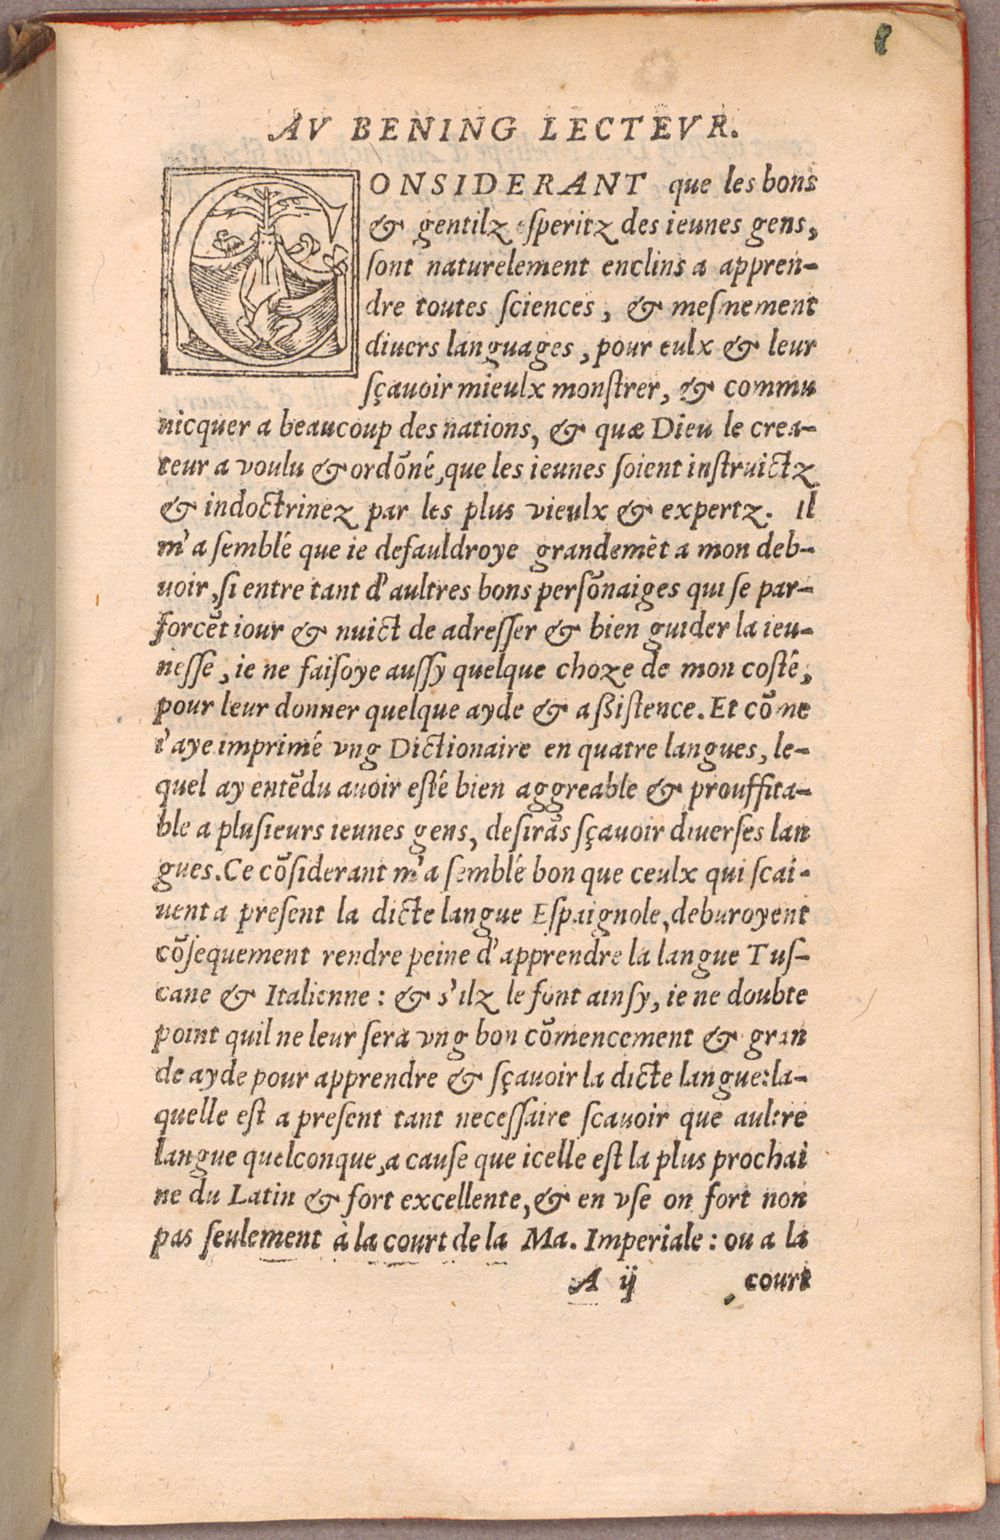 AV BENING LECTEVR.
CONSIDERANT que les bons
& gentilz esperitz des ieunes gens,
ſont naturelement enclins a appren-
dre toutes ſciences, & meſnement
diuers languages, pour eulx & leur
ſçauoir mieulx monſtrer, & commu
nicquer a beaucoup des nations, & quæ Dieu le crea-
teur a voulu & ordōné, que les ieunes ſoient inſtruictz
& indoctrinez par les plus vieulx & expertz. Il
m'a ſemblé que ie defauldroye grandemēt a mon deb-
uoir, ſi entre tant d'aultres bons perſōnaiges qui ſe par-
forcēt iour & nuict de adreſſer & bien guider la ieu-
neſſe, ie ne faiſoye auſſy quelque choze de mon coſté,
pour leur donner quelque ayde & aſsiſtence. Et cōme
i'aye imprimé vng Dictionaire en quatre langues, le-
quel ay entēdu auoir eſté bien aggreable & prouffita-
ble a pluſieurs ieunes gens, deſirās ſçauoir diuerſes lan
gues. Ce cōſiderant m'a ſemblé bon que ceulx qui ſcai-
uent a preſent la dicte langue Eſpaignole, deburoyent
cōſequement rendre peine d'apprendre la langue Tuſ-
cane & Italienne : & s'ilz le font ainſy, ie ne doubte
point quil ne leur ſera vng bon cōmencement & gran
de ayde pour apprendre & ſçauoir la dicte langue: la-
quelle eſt a preſent tant neceſſaire ſcauoir que aultre
langue quelconque, a cauſe que icelle eſt la plus prochai
ne du Latin & fort excellente, & en vſe on fort non
pas ſeulement à la court de la Ma. Imperiale : ou a la
A ij court